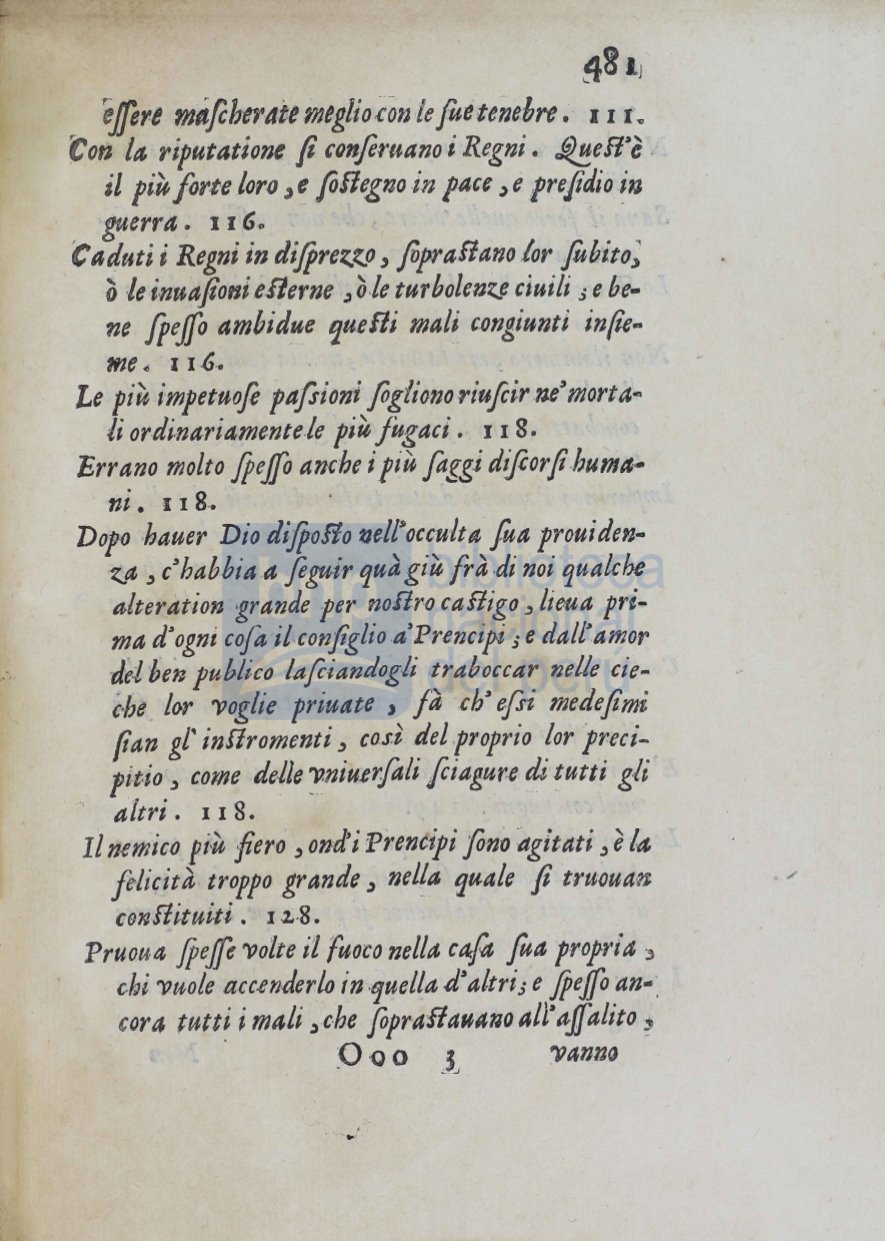 481
eſſere maſcherate meglio con le ſue tenebre. 111.
Con la riputatione ſi conſeruano i Regni. Queſt'è
il più forte loro, e ſoſtegno in pace, e preſidio in
guerra. 116.
Caduti i Regni in diſprezzo, ſopraſtano lor ſubito,
ò le inuaſioni eſterne, ò le turbolenze ciuili; e be-
ne ſpeſſo ambidue queſti mali congiunti inſie-
me. 116.
Le più impetuoſe paſsioni ſogliono riuſcir ne' morta-
li ordinariamente le più fugaci. 118.
Errano molto ſpeſſo anche i più ſaggi diſcorſi huma-
ni. 118.
Dopo hauer Dio diſpoſto nell'occulta ſua prouiden-
za, c'habbia a ſeguir quà giù frà di noi qualche
alteration grande per noſtro caſtigo, lieua pri-
ma d'ogni coſa il conſiglio a' Prencipi; e dall'amor
del ben publico laſciandogli traboccar nelle cie-
che lor voglie priuate, fà ch' eſsi medeſimi
ſian gl' inſtromenti, così del proprio lor preci-
pitio, come delle vniuerſali ſciagure di tutti gli
altri. 118.
Il nemico più fiero, ond'i Prencipi ſono agitati, è la
felicità troppo grande, nella quale ſi truouan
conſtituiti. 128.
Pruoua ſpeſſe volte il fuoco nella caſa ſua propria,
chi vuole accenderlo in quella d'altri; e ſpeſſo an-
cora tutti i mali, che ſopraſtauano all'aſſalito,
Ooo 3 vanno